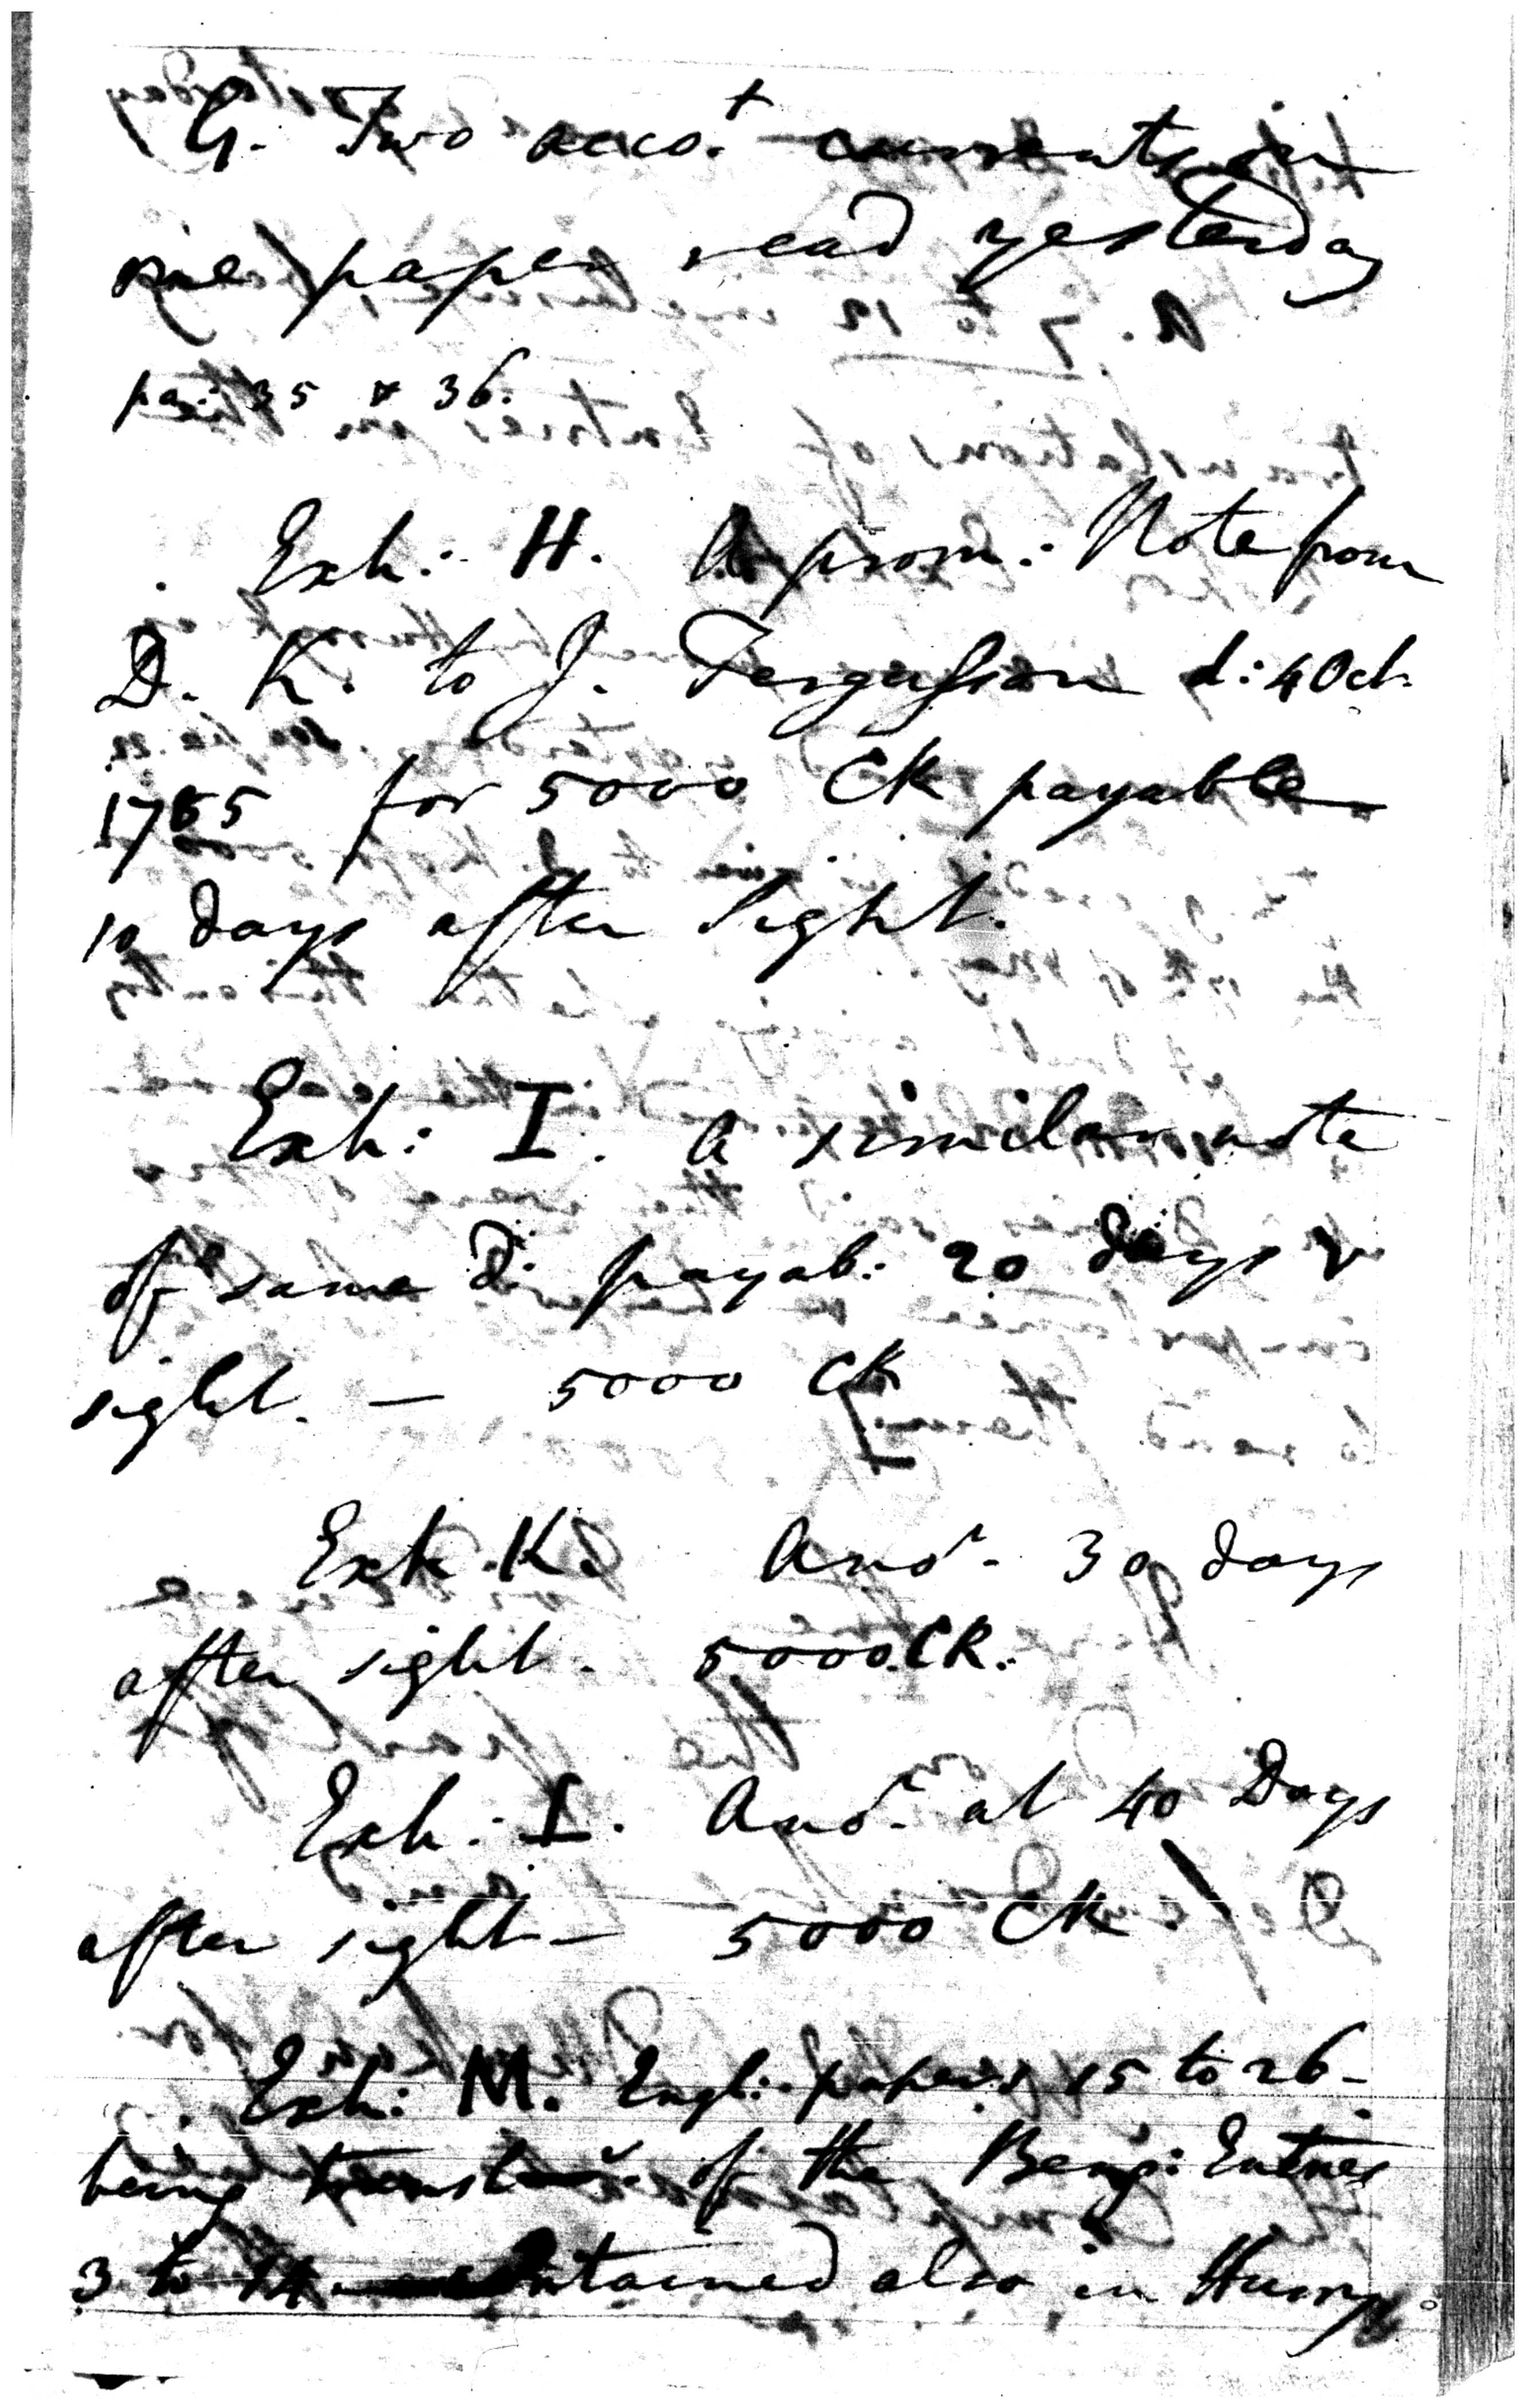 G. Two acco.t currents in
one paper read yesterday
pa: 35 & 36.
Exh: H. A prom: Note from
D. K. to J. Fergusson d: 4 Oct.
1785 for 5000 CR payable
10 days after sight.
Exh: I. A similar note
of same d: payab: 20 days
sight. — 5000 CR
Exh. K. Ano.r 30 days
after sight. 5000 CR.
Exh: L. Ano.r at 40 Days
after sight — 5000 CR
Exh: M. Engl: papers 15 to 26 -
being of the Beng: Entries
3 to 14 also in